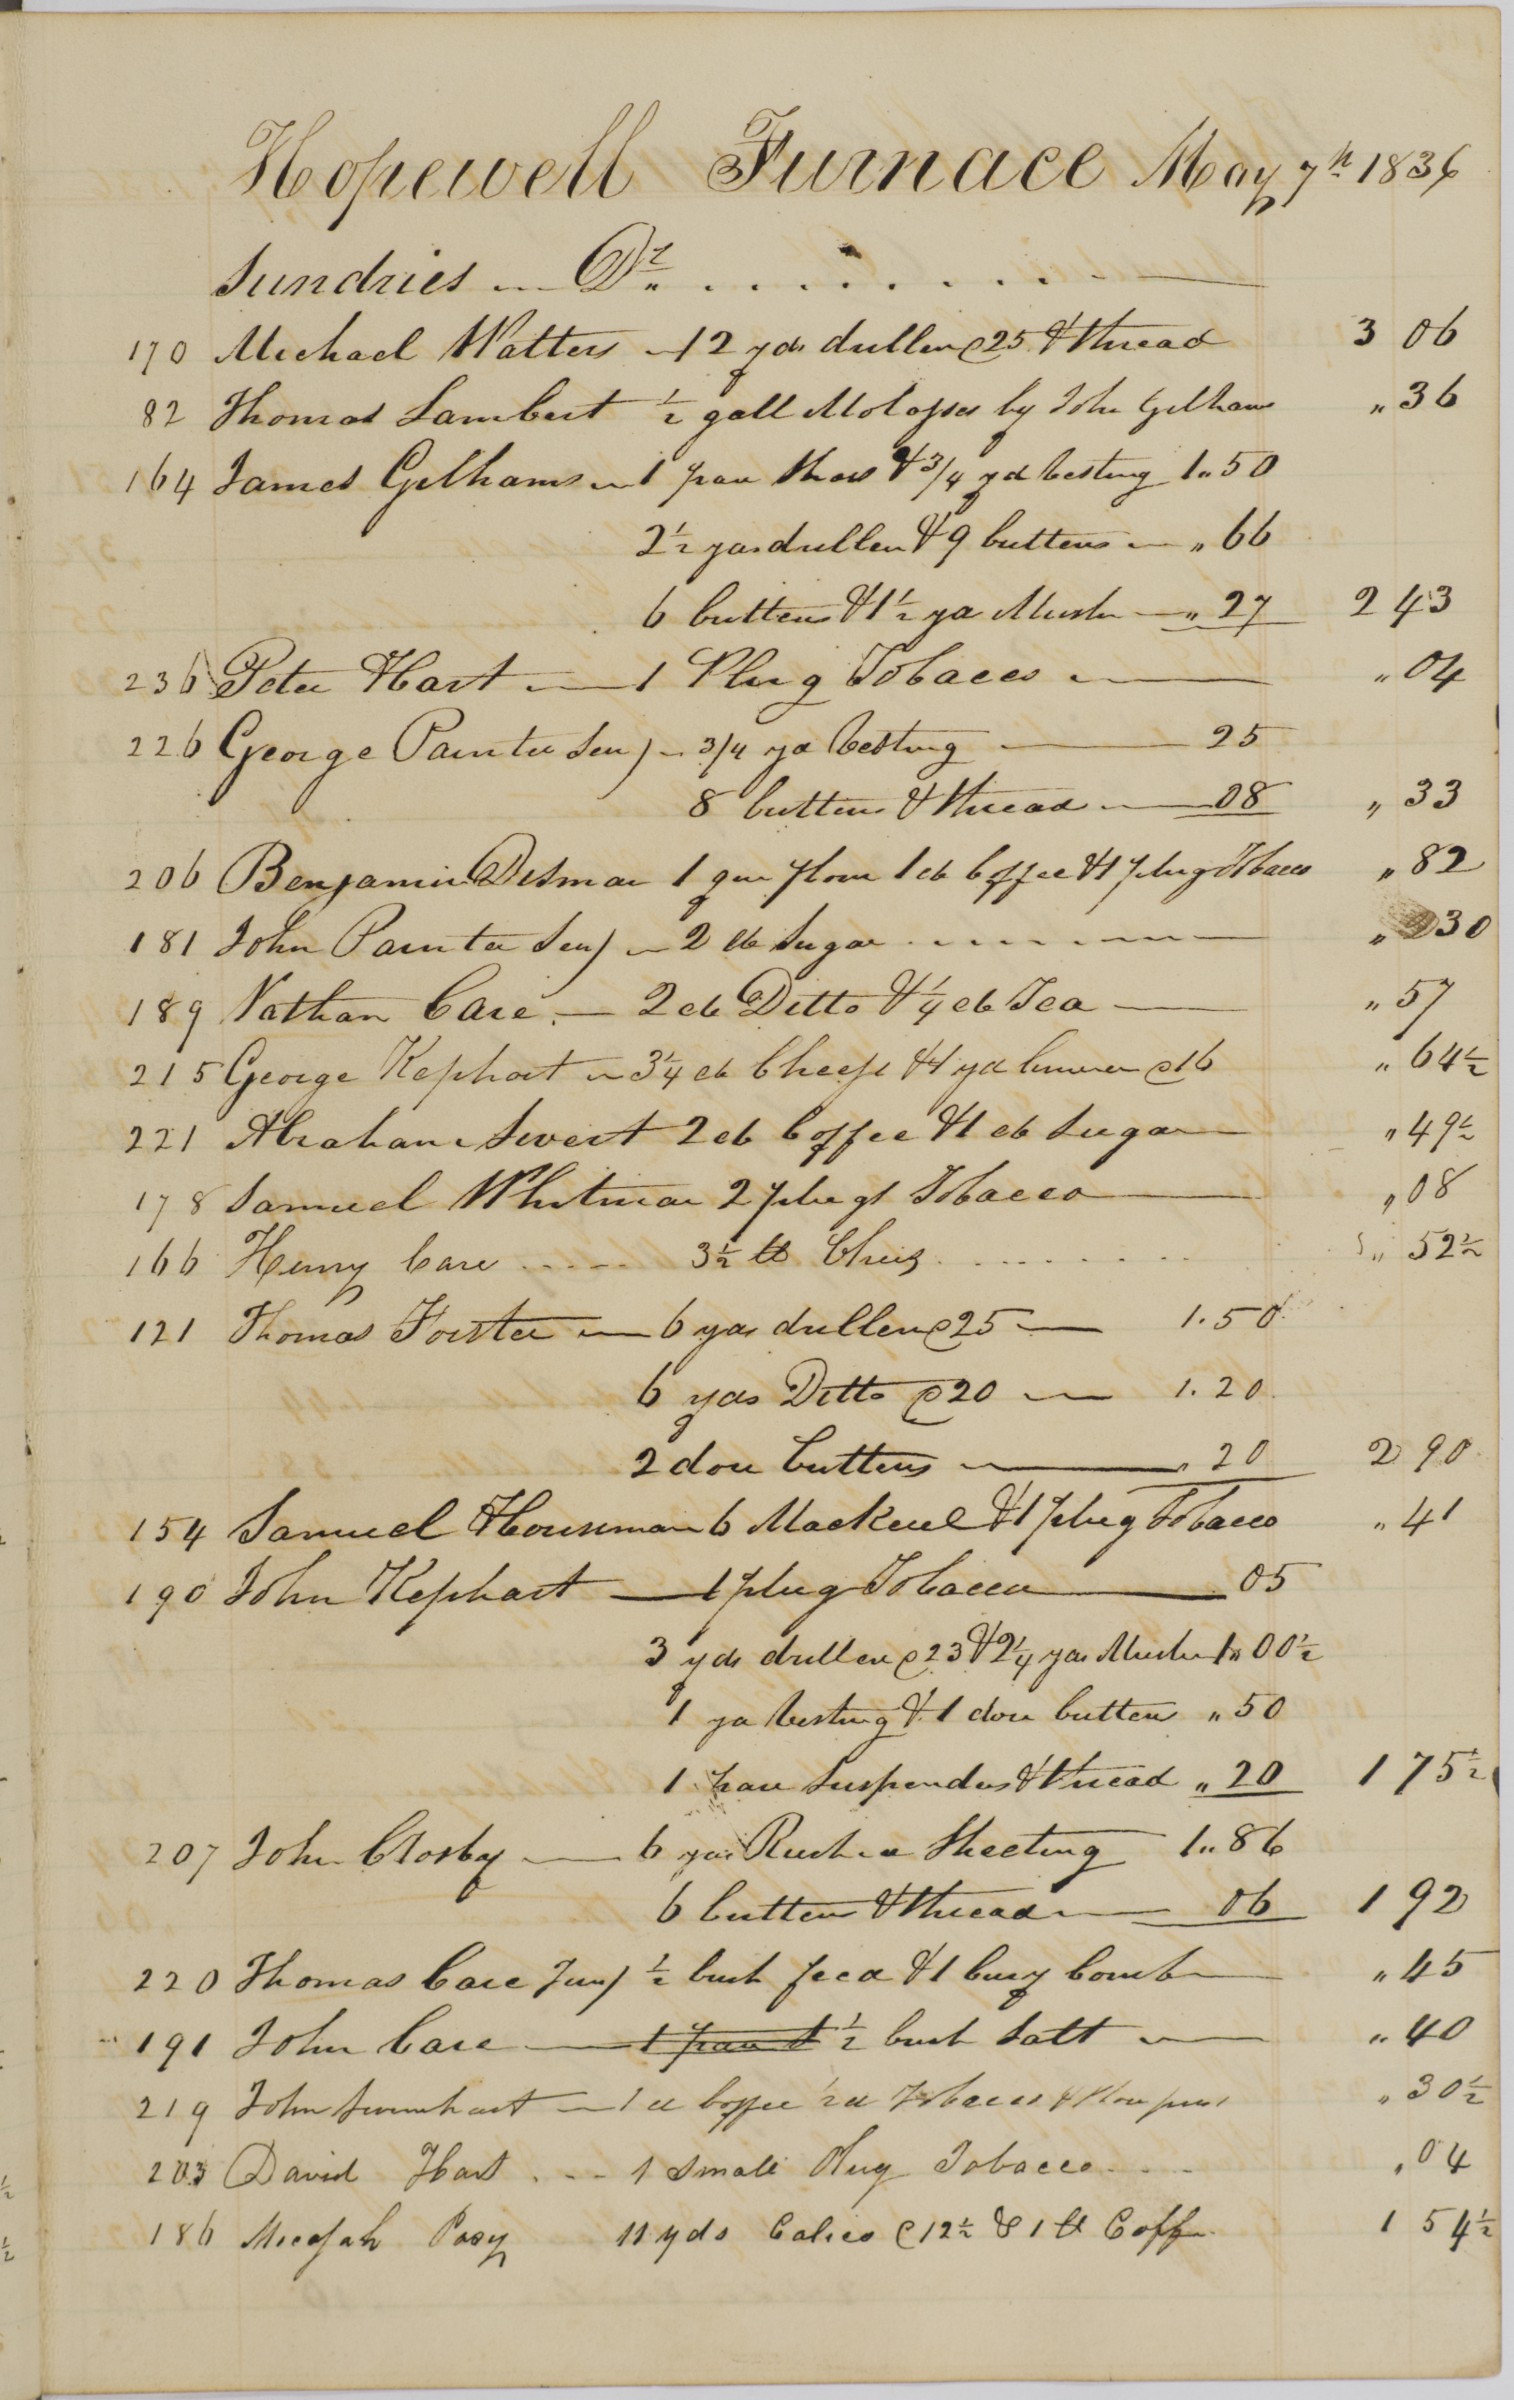 Hopewell Furnace May 7th 1836
Sundries Dr
170 Michael Watters 12 yds drillen @ 25 & thread 3 06
82 Thomas Lambert ½ gall Molasses by John Gilhams " 36
164 James Gilhams 1 pair Shoes & 3/4 yd Vesting 1 " 50
2½ yds drillen & 9 buttons " 66
6 buttons & 1½ yd Muslin " 27 2 43
236 Peter Hart 1 Plug Tobacco " 04
226 George Painter Senr 3/4 yd Vesting 25
8 buttons & thread 08 " 33
206 Benjamin Dismar 1 qur flour 1 lb Coffee & 1 plug Tobacco " 82
181 John Painter Senr 2 lb Sugar " 30
189 Nathan Care 2 lb Ditto & ¼ lb Tea " 57
215 George Kephart 3¼ lb Cheese & 1 yd @ 16 " 64½
221 Abraham Sivert 2 lb Coffee & 1 lb Sugar " 49½
178 Samuel Whitman 2 plugs Tobacco " 08
166 Henry Care 3½ lb Chees " 52½
121 Thomas Forster 6 yds drillen @ 25 1.50
6 yds Ditto @ 20 1.20
2 doz buttons 20 2 90
154 Samuel Housman 6 Mackerel & 1 plug Tobacco " 41
190 John Kephart 1 plug Tobacco 05
3 yds drillen @ 23 & 2¼ yds Muslin 1 " 00½
1 yd Vesting & 1 doz buttons " 50
1 pair Suspenders & thread " 20 1 75½
207 John Closby 6 yds Rushia Sheeting 1 " 86
6 buttons & thread 06 1 92
220 Thomas Care Junr ½ bush feed & 1 Comb " 45
191 John Care 1 pair & ½ bush Salt " 40
219 John Swinehart 1 lb Coffee ½ lb Tobacco & " 30½
203 David Hart 1 Small Plug Tobacco " 04
186 Micajah Posy 11 yds Calico @ 12½ & 1 lb Coffee 1 54½